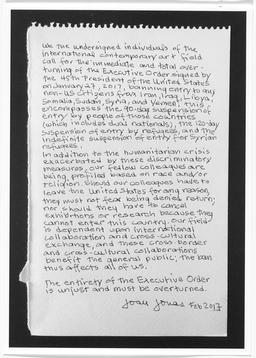 We the undersigned individuals of the
international contemporary art field
call for the immediate and total over-
turning of the Executive Order signed by
the 45th President of the United States
on January 27, 2017, banning entry to any
non-US citizens from Iran, Iraq, Libya,
Somalia, Sudan, Syria, and Yemen. This
encompasses the 90-day suspension of
entry by people of those countries
(which includes dual nationals), the 120-day
suspension of entry by refugees, and the
indefinite suspension of entry for Syrian
refugees.
In addition to the humanitarian crisis
exacerbated by these discriminatory
measures, our fellow colleagues are
being profiled based on race and/or
religion. Should our colleagues have to
leave the United States for any reason,
they must not fear being denied return;
nor should they have to cancel
exhibitions or research because they
cannot enter this country. Our field
is dependent upon international
collaboration and cross-cultural
exchange, and these cross-border
and cross-cultural collaborations
benefit the general public; the ban
thus affects all of us.
The entirety of the Executive Order
is unjust and must be overturned.
Joan Jonas Feb 2017